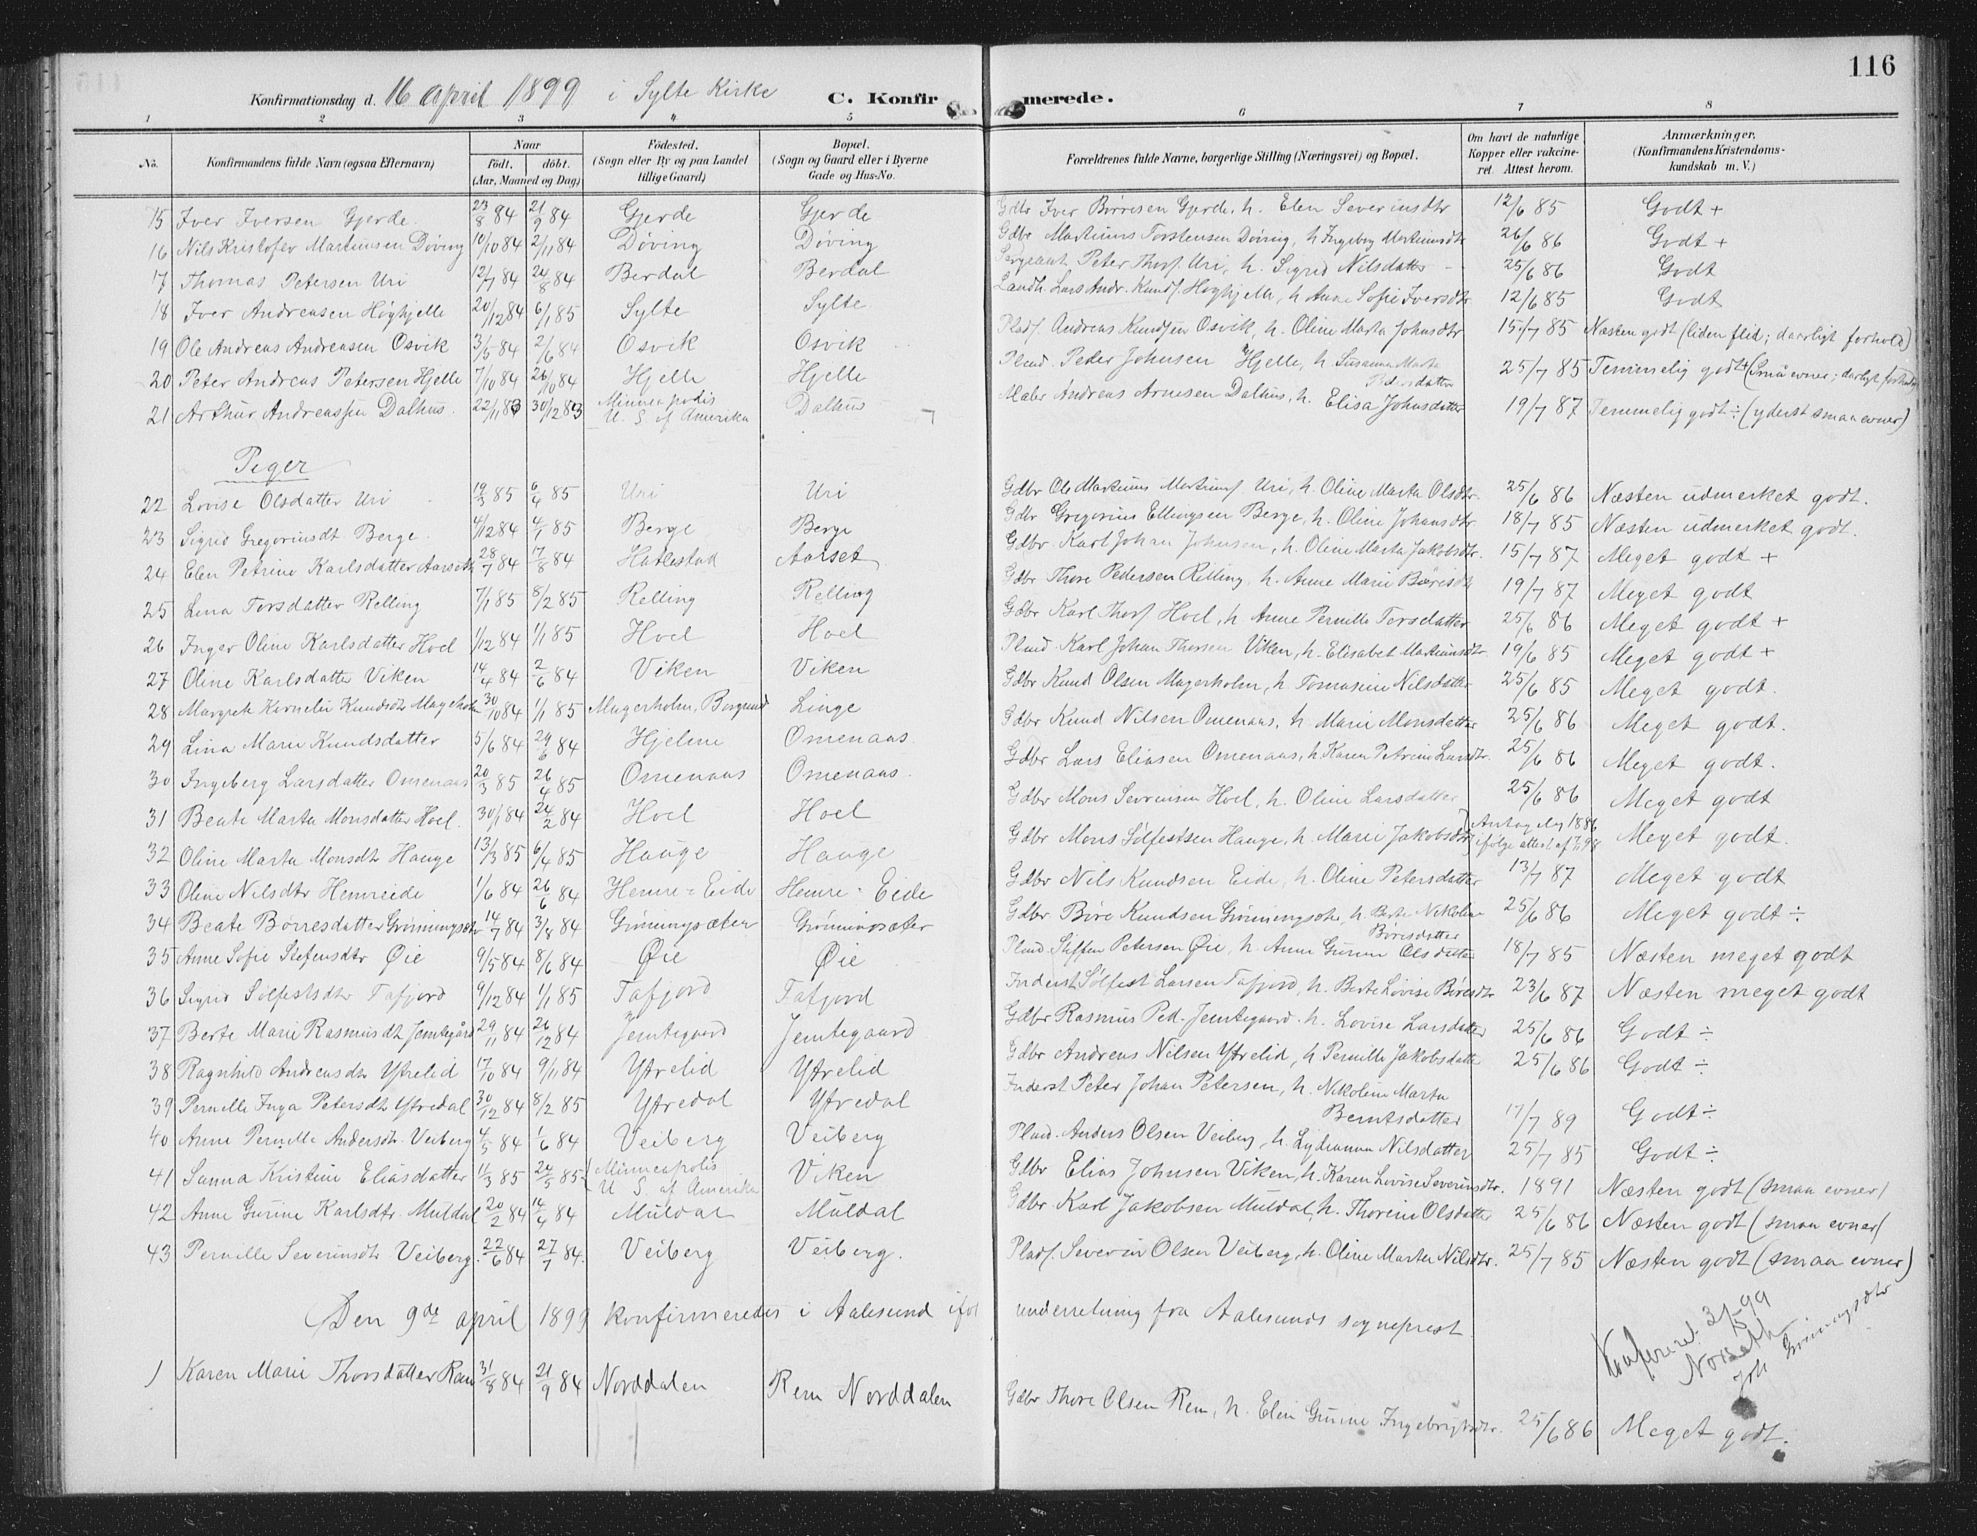 116
Konfirmationsdag d. 16 april 1899 i Sylte Kirke C. Konfirmerede.
1 2 3 4 5 6 7 8
No. Konfirmandens fulde Navn (ogsaa Efternavn) Naar født. døbt. (Aar, Maaned og Dag) Fødested. (Sogn eller By og paa Landet tillige Gaard) Bopæl. (Sogn og Gaard eller i Byerne Gade og Hus-No. Forældrenes fulde Navne, borgerlige Stilling (Næringsvei) og Bopæl. Om havt de naturlige Kopper eller vakcineret. Attest herom. Anmærkninger, (Konfirmandens Kristendomskundskab m. V.)
15 Iver Iversen Gjerde 23/8 84 21/9 84 Gjerde Gjerde Gdbr Iver Børresen Gjerde, h. Elen Severinsdtr 12/6 85 Godt +
16 Nils Kristofer Martinusen Døving 10/10 84 2/11 84 Døving Døving Gdbr Martinus Torstensen Døving, h Ingeborg Martinusdtr 26/6 86 Godt +
17 Thomas Petersen Uri 12/7 84 24/8 84 Berdal Berdal Sergeant Peter Thors. Uri, h. Sigrid Nilsdatter 25/6 86 Godt
18 Iver Andreasen Høghjelle 20/12 84 6/1 85 Sylte Sylte Landh. Lars Andr. Knuds. Høghjelle, h Anne Sofie Iversdtr 12/6 85 Godt
19 Ole Andreas Andreasen Osvik 3/5 84 2/6 84 Osvik Osvik Plads. Andreas Knudsen Osvik, h. Oline Marta Johnsdtr 15/7 85 Næsten godt (liden flid; daarligt forhold)
20 Peter Andreas Petersen Hjelle 7/10 84 26/10 84 Hjelle Hjelle Plmd. Peder Johnsen Hjelle, h Susanna Marta Petersdatter 25/7 85 Temmelig godt + (Små evner; darligt forhold)
21 Arthur Andreassen Dalhus 22/11 83 30/12 83 Minneapolis U. S. af Amerika Dalhus Maler Andreas Arnesen Dalhus, h. Elisa Johnsdatter 19/7 87 Temmelig godt ÷ (yderst smaa evner)
Piger
22 Lovise Olsdatter Uri 19/3 85 6/4 85 Uri Uri Gdbr Ole Martinus Martinus. Uri, h. Oline Marta Olsdtr. 25/6 86 Næsten udmerket godt.
23 Sigrid Gregoriusdt Berge 4/12 84 4/1 85 Berge Berge Gdbr Gregorius Ellingsen Berge, h. Oline Johansdtr. 18/7 85 Næsten udmerket godt.
24 Elen Petrine Karlsdatter Aarseth 28/7 84 17/8 84 Hatlestad Aarset Gdbr. Karl Johan Johnsen, h. Oline Marta Jakobsdtr. 15/7 87 Meget godt +
25 Lina Torsdatter Relling 7/1 85 8/2 85 Relling Relling Gdbr Thore Pedersen Relling, h. Anne Marie Børesdt 19/7 87 Meget godt
26 Inger Oline Karlsdatter Hoel 1/12 84 1/1 85 Hoel Hoel Gdbr Karl Thors. Hoel, h Anne Pernille Torsdatter 25/6 86 Meget godt +
27 Oline Karlsdatter Viken 14/4 84 2/6 84 Viken Viken Plmd. Karl Johan Thorsen Viken, h. Elisabet Martinusdtr 19/6 85 Meget godt +
28 Margrete Kornelie Knudsdtr Mageholm 30/10 84 1/1 85 Magerholm, Borgund Linge Gdbr Knud Olsen Magerholm, h Tomasine Nilsdatter 25/6 85 Meget godt.
29 Lina Marie Knudsdatter 5/6 84 29/6 84 Hjelme Omenaas Gdbr Knud Nilsen Omenaas, h Marie Monsdatter 25/6 86 Meget godt.
30 Ingeborg Larsdatter Omenaas 20/3 85 26/4 85 Omenaas Omenaas. Gdbr Lars Eliasen Omenaas, h. Karen Petrine Larsdtr. 25/6 86 Meget godt.
31 Beate Marta Monsdatter Hoel 30/1 84 24/2 84 Hoel Hoel Gdbr Mons Sevrinsen Hoel, h. Oline Larsdatter 25/6 86 Meget godt
32 Oline Marta Monsdtr Hauge 13/3 85 6/4 85 Hauge Hauge Gdbr Mons Sølfestsen Hauge, h. Marie Jakobsdtr ifølge attest af Meget godt.
33 Oline Nilsdtr Hemreide 1/6 84 26/6 84 Hemre=Eide Hemre-Eide Gdbr Nils Knudsen Eide, h. Oline Petersdatter 13/7 87 Meget godt
34 Beate Børresdatter Grønningsæter 14/7 84 3/8 84 Grønningsæter Grønningsæter Gdbr Børe Knudsen Grønningsætr, h Berte Nikoline Børesdatter 25/6 86 Meget godt ÷
35 Anne Sofie Stefensdtr Øie 9/5 84 8/6 84 Øie Øie Plmd. Steffen Petersen Øie, h. Anne Gurine Olsdatter 18/7 85 Næsten meget godt
36 Sigrid Sølfestsdtr Tafjord 9/12 84 1/1 85 Tafjord Tafjord Inderst Sølfest Larsen Tafjord, h. Berte Lovise Børesdtr 23/6 87 Næsten meget godt
37 Berte Marie Rasmusdt Jemtegård 29/11 84 26/12 84 Jemtegaard Jemtegaard Gdbr Rasmus Ped. Jemtegaard. h. Lovise Larsdatter 25/6 86 Godt ÷
38 Ragnhild Andreasdtr Ytrelid 17/10 84 9/11 84 Ytrelid Ytrelid Gdbr Andreas Nilsen Ytrelid, h Pernille Jakobsdatte 25/6 86 Godt ÷
39 Pernille Inga Petersdtr Ytredal 30/12 84 8/2 85 Ytredal Ytredal Inderst Peter Johan Petersen, h. Nikoline Marta Berntsdatter 17/7 89 Godt ÷
40 Anne Pernille Andersdtr Veiberg 4/5 84 1/6 84 Veiberg Veiberg Plmd. Anders Olsen Veiberg, h. Lydianna Nilsdatter 25/7 85 Godt ÷
41 Sanna Kristine Eliasdatter 11/3 85 24/5 85 Minneapolis U S. af Amerika Viken Gdbr Elias Johnsen Viken, h. Karen Lovise Severinsdtr. 1891 Næsten godt (smaa evner)
42 Anne Gurine Karlsdtr. Muldal 20/2 84 14/4 84 Muldal Muldal Gdbr. Karl Jakobsen Muldal, h. Thorine Olsdatter 25/6 86 Næsten godt (smaa evner)
43 Pernille Severinsdtr Veiberg. 22/6 84 27/7 84. Veiberg Veiberg. Plads. Severin Olsen Veiberg, h. Oline Marta Nilsdtr. 25/7 85 Næsten godt (smaa evner)
Den 9de april 1899 konfirmeredes i Aalesund iføl underretning fra Aalesunds sogneprest.
Konfereret 3/5-99
Norseth
1 Karen Marie Thorsdatter Rem 31/8 84 21/9 84 Norddalen Rem Norddalen Gdbr Thore Olsen Rem, h. Elen Gurine Ingebrigtsdtr. 25/6 86 Meget godt.